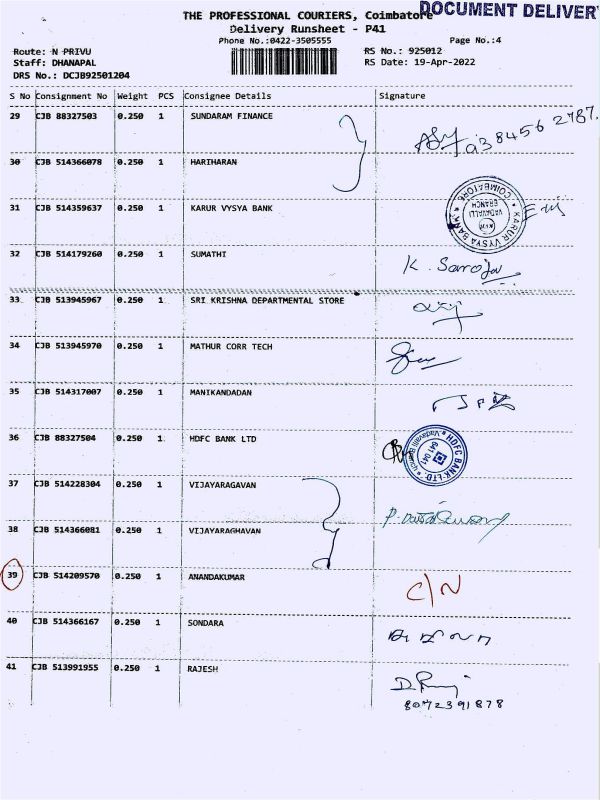 DOCUMENT DELIVER
THE PROFESSIONAL COURIERS, Coimbatore
Delivery Runsheet - P41
Phone No.:0422-3505555
Page No.:4
Route: N PRIVU
RS No.: 925012
Staff: DHANAPAL
RS Date: 19-Apr-2022
DRS No.: DCJB92501204
S No Consignment No Weight PCS Consignee Details Signature
29 CJB 88327503 0.250 1 SUNDARAM FINANCE
30 CJB 514366078 0.250 1 HARIHARAN
31 CJB 514359637 0.250 1 KARUR VYSYA BANK
KARUR VYSYA BANK * COIMBATORE *
VADAVALLI
BRANCH
32 CJB 514179260 0.250 1 SUMATHI K. Saroja
33 CJB 513945967 0.250 1 SRI KRISHNA DEPARTMENTAL STORE
34 CJB 513945970 0.250 1 MATHUR CORR TECH
35 CJB 514317007 0.250 1 MANIKANDADAN
36 CJB 88327504 0.250 1 HDFC BANK LTD
HDFC BANK LTD.
641 041
37 CJB 514228304 0.250 1 VIJAYARAGAVAN
38 CJB 514366081 0.250 1 VIJAYARAGHAVAN
39 CJB 514209570 0.250 1 ANANDAKUMAR C/N
40 CJB 514366167 0.250 1 SONDARA
41 CJB 513991955 0.250 1 RAJESH
8072391878